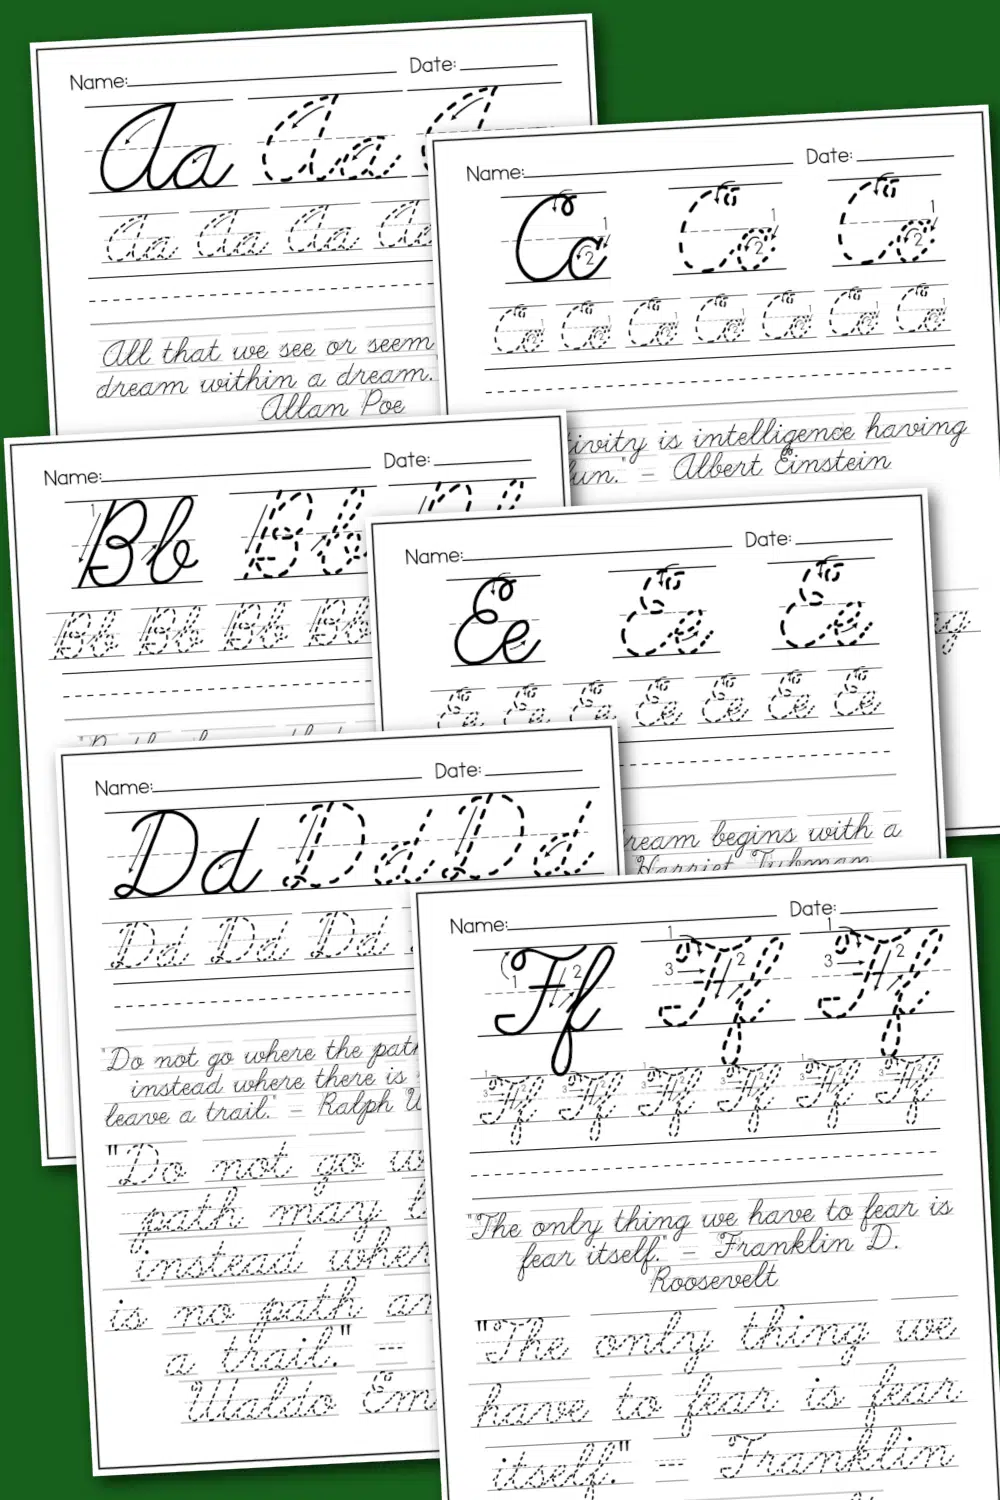 Name: Date:
Aa Aa
Aa Aa Aa Aa
All that we see or seem
dream within a dream.
Allan Poe
Name: Date:
1
Cc Cc Cc
2 1 2 2 1
Cc Cc Cc Cc Cc Cc Cc
tivity is intelligence having
fun." - Albert Einstein
Name: Date:
1
Bb Bb
Bb Bb Bb Bb
Name: Date:
Ee Ee Ee
Ee Ee Ee Ee Ee Ee Ee
dream begins with a
Harriet Tubman
Name: Date:
Dd Dd Dd
Dd Dd Dd
"Do not go where the path
instead where there is
leave a trail." - Ralph W
"Do not go w
path may b
instead wher
is no path an
a trail." -
Waldo Em
Name: Date:
1 2 1 3 2 1 3 2
Ff Ff Ff
Ff Ff Ff Ff Ff Ff
"The only thing we have to fear is
fear itself." - Franklin D.
Roosevelt
"The only thing we
have to fear is fear
itself." - Franklin